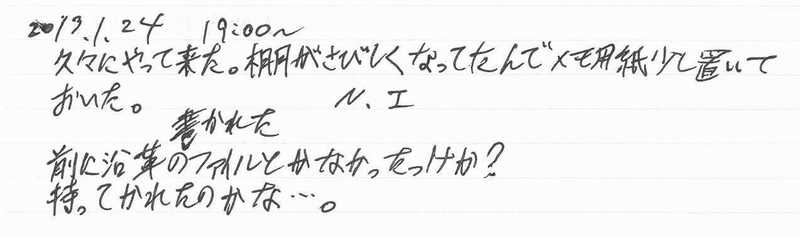 2013.1.24 19:00〜
久々にやって来た。棚がさびしくなってたんでメモ用紙少し置いて
おいた。 N.I
書かれた
前に沿革のファイルとかなかったっけか?
持ってかれたのかな…。